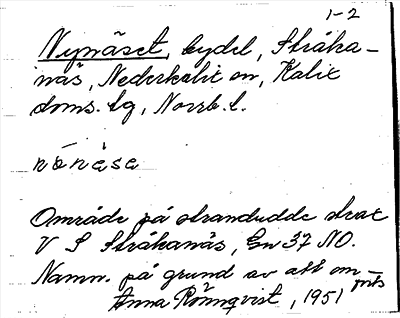 1-2
Nynäset, bydel, Stråka-
näs, Nederkalix sn, Kalix
doms. tg, Norrb. l.
nónäsa
Område på strandudde strax
V S Stråkanäs, Ev 37 NO.
Namn. på grund av att om-
Anna Rönnqvist, 1951